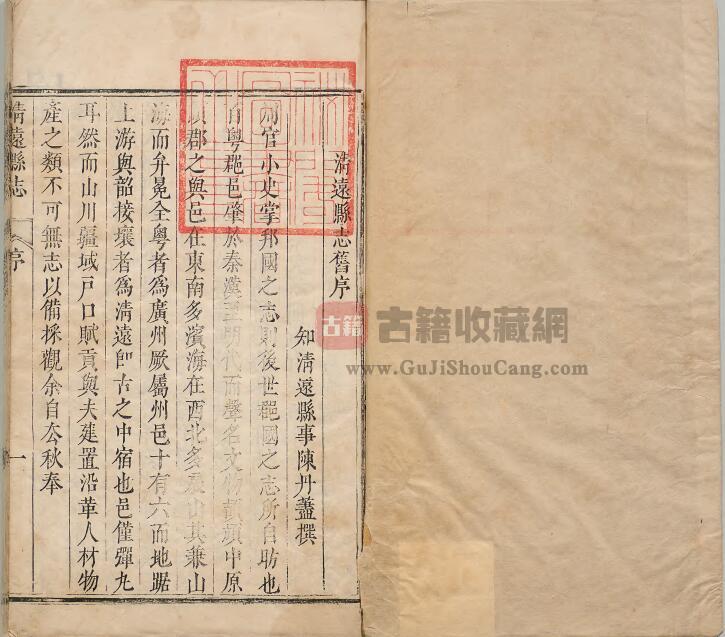 清遠縣志舊序
知清遠縣事陳丹藎撰
周官小史掌邦國之志則後世郡國之志所自昉也
自粤郡邑肇於秦漢至明代而聲名文物頡頏中原
郡之與邑在東南多濱海在西北多負山其兼山
海而弁冕全粤者爲廣州厥屬州邑十有六而地踞
上游與韶接壤者爲清遠卽古之中宿也邑僅彈丸
耳然而山川疆域戸口賦貢與夫建置沿革人材物
產之類不可無志以備採觀余自厺秋奉
清遠縣志
序
一
古籍
古籍收藏網
www.GuJiShouCang.com